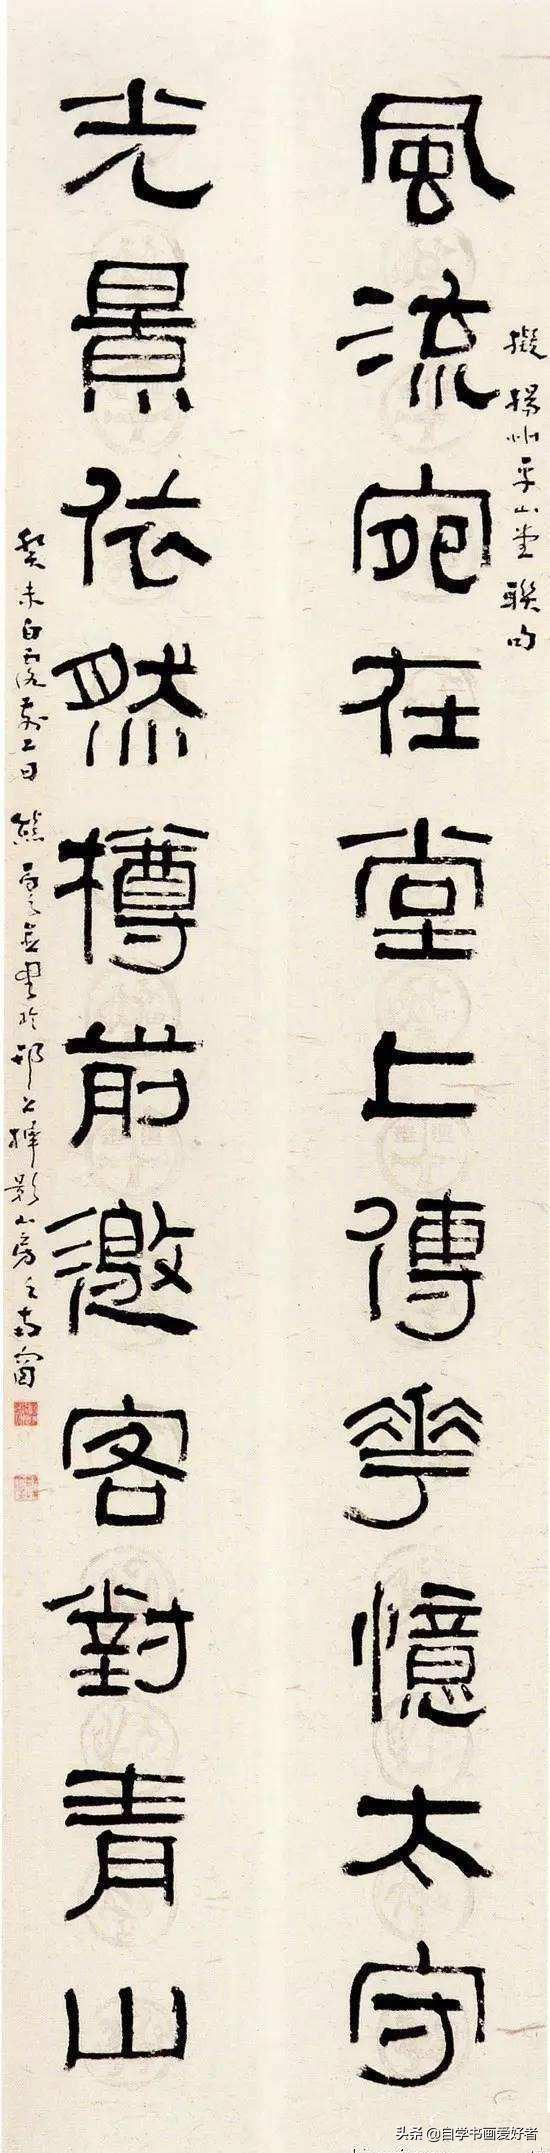 擬揚州平山堂聯句
風流宛在堂上傳花憶太守
光景依然樽前邀客對青山
癸未白露前二日 熊百之書於邗上影山房之南窗
头条 @自学书画爱好者